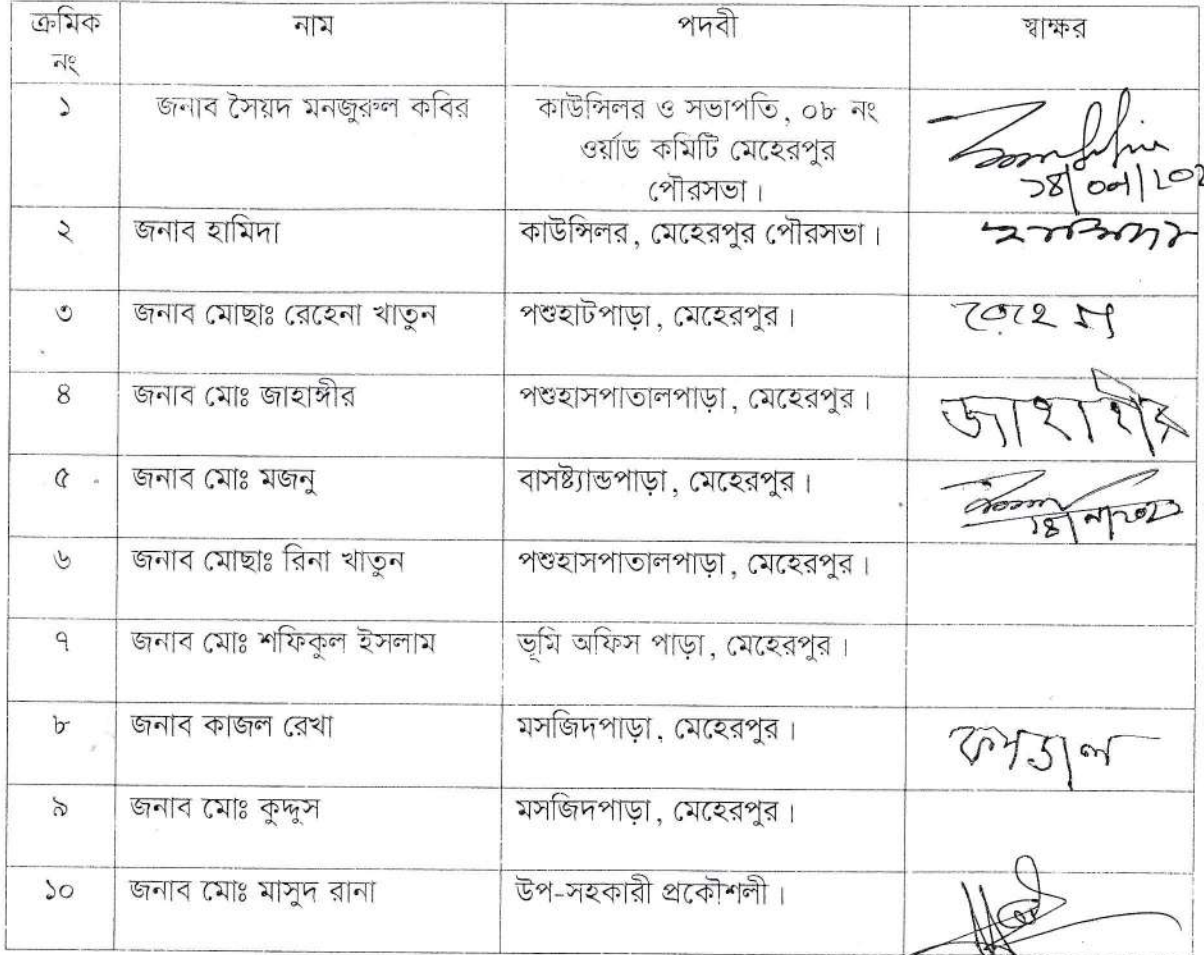 ক্রমিক নং নাম পদবী স্বাক্ষর
১ জনাব সৈয়দ মনজুরুল কবির কাউন্সিলর ও সভাপতি, ০৮ নং
ওয়ার্ড কমিটি মেহেরপুর
পৌরসভা।
২ জনাব হামিদা কাউন্সিলর, মেহেরপুর পৌরসভা। হামিদা
৩ জনাব মোছাঃ রেহেনা খাতুন পশুহাটপাড়া, মেহেরপুর। রেহেনা
৪ জনাব মোঃ জাহাঙ্গীর পশুহাসপাতালপাড়া, মেহেরপুর।
৫ জনাব মোঃ মজনু বাসষ্ট্যান্ডপাড়া, মেহেরপুর।
৬ জনাব মোছাঃ রিনা খাতুন পশুহাসপাতালপাড়া, মেহেরপুর।
৭ জনাব মোঃ শফিকুল ইসলাম ভূমি অফিস পাড়া, মেহেরপুর।
৮ জনাব কাজল রেখা মসজিদপাড়া, মেহেরপুর। কাজল
৯ জনাব মোঃ কুদ্দুস মসজিদপাড়া, মেহেরপুর।
১০ জনাব মোঃ মাসুদ রানা উপ-সহকারী প্রকৌশলী।